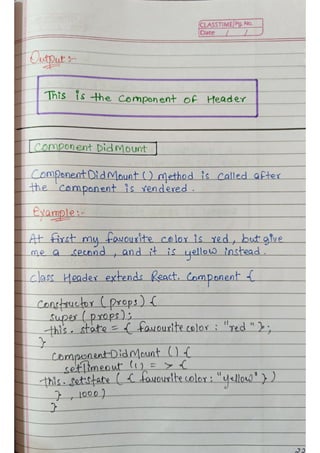 CLASSTIME Pg. No.
Date / /
Output :-
This is the Component of Header
Component DidMount
ComponentDidMount () method is called after
the component is rendered.
Example:-
At first my favourite color is red, but give
me a second, and it is yellow instead.
class Header extends React. Component {
Constructor (props) {
super (props);
this. state = { favouritecolor : "red" };
}
ComponentDidMount () {
setTimeout (() = > {
this. setstate ( { favouritecolor : "yellow" } )
} , 1000 )
}